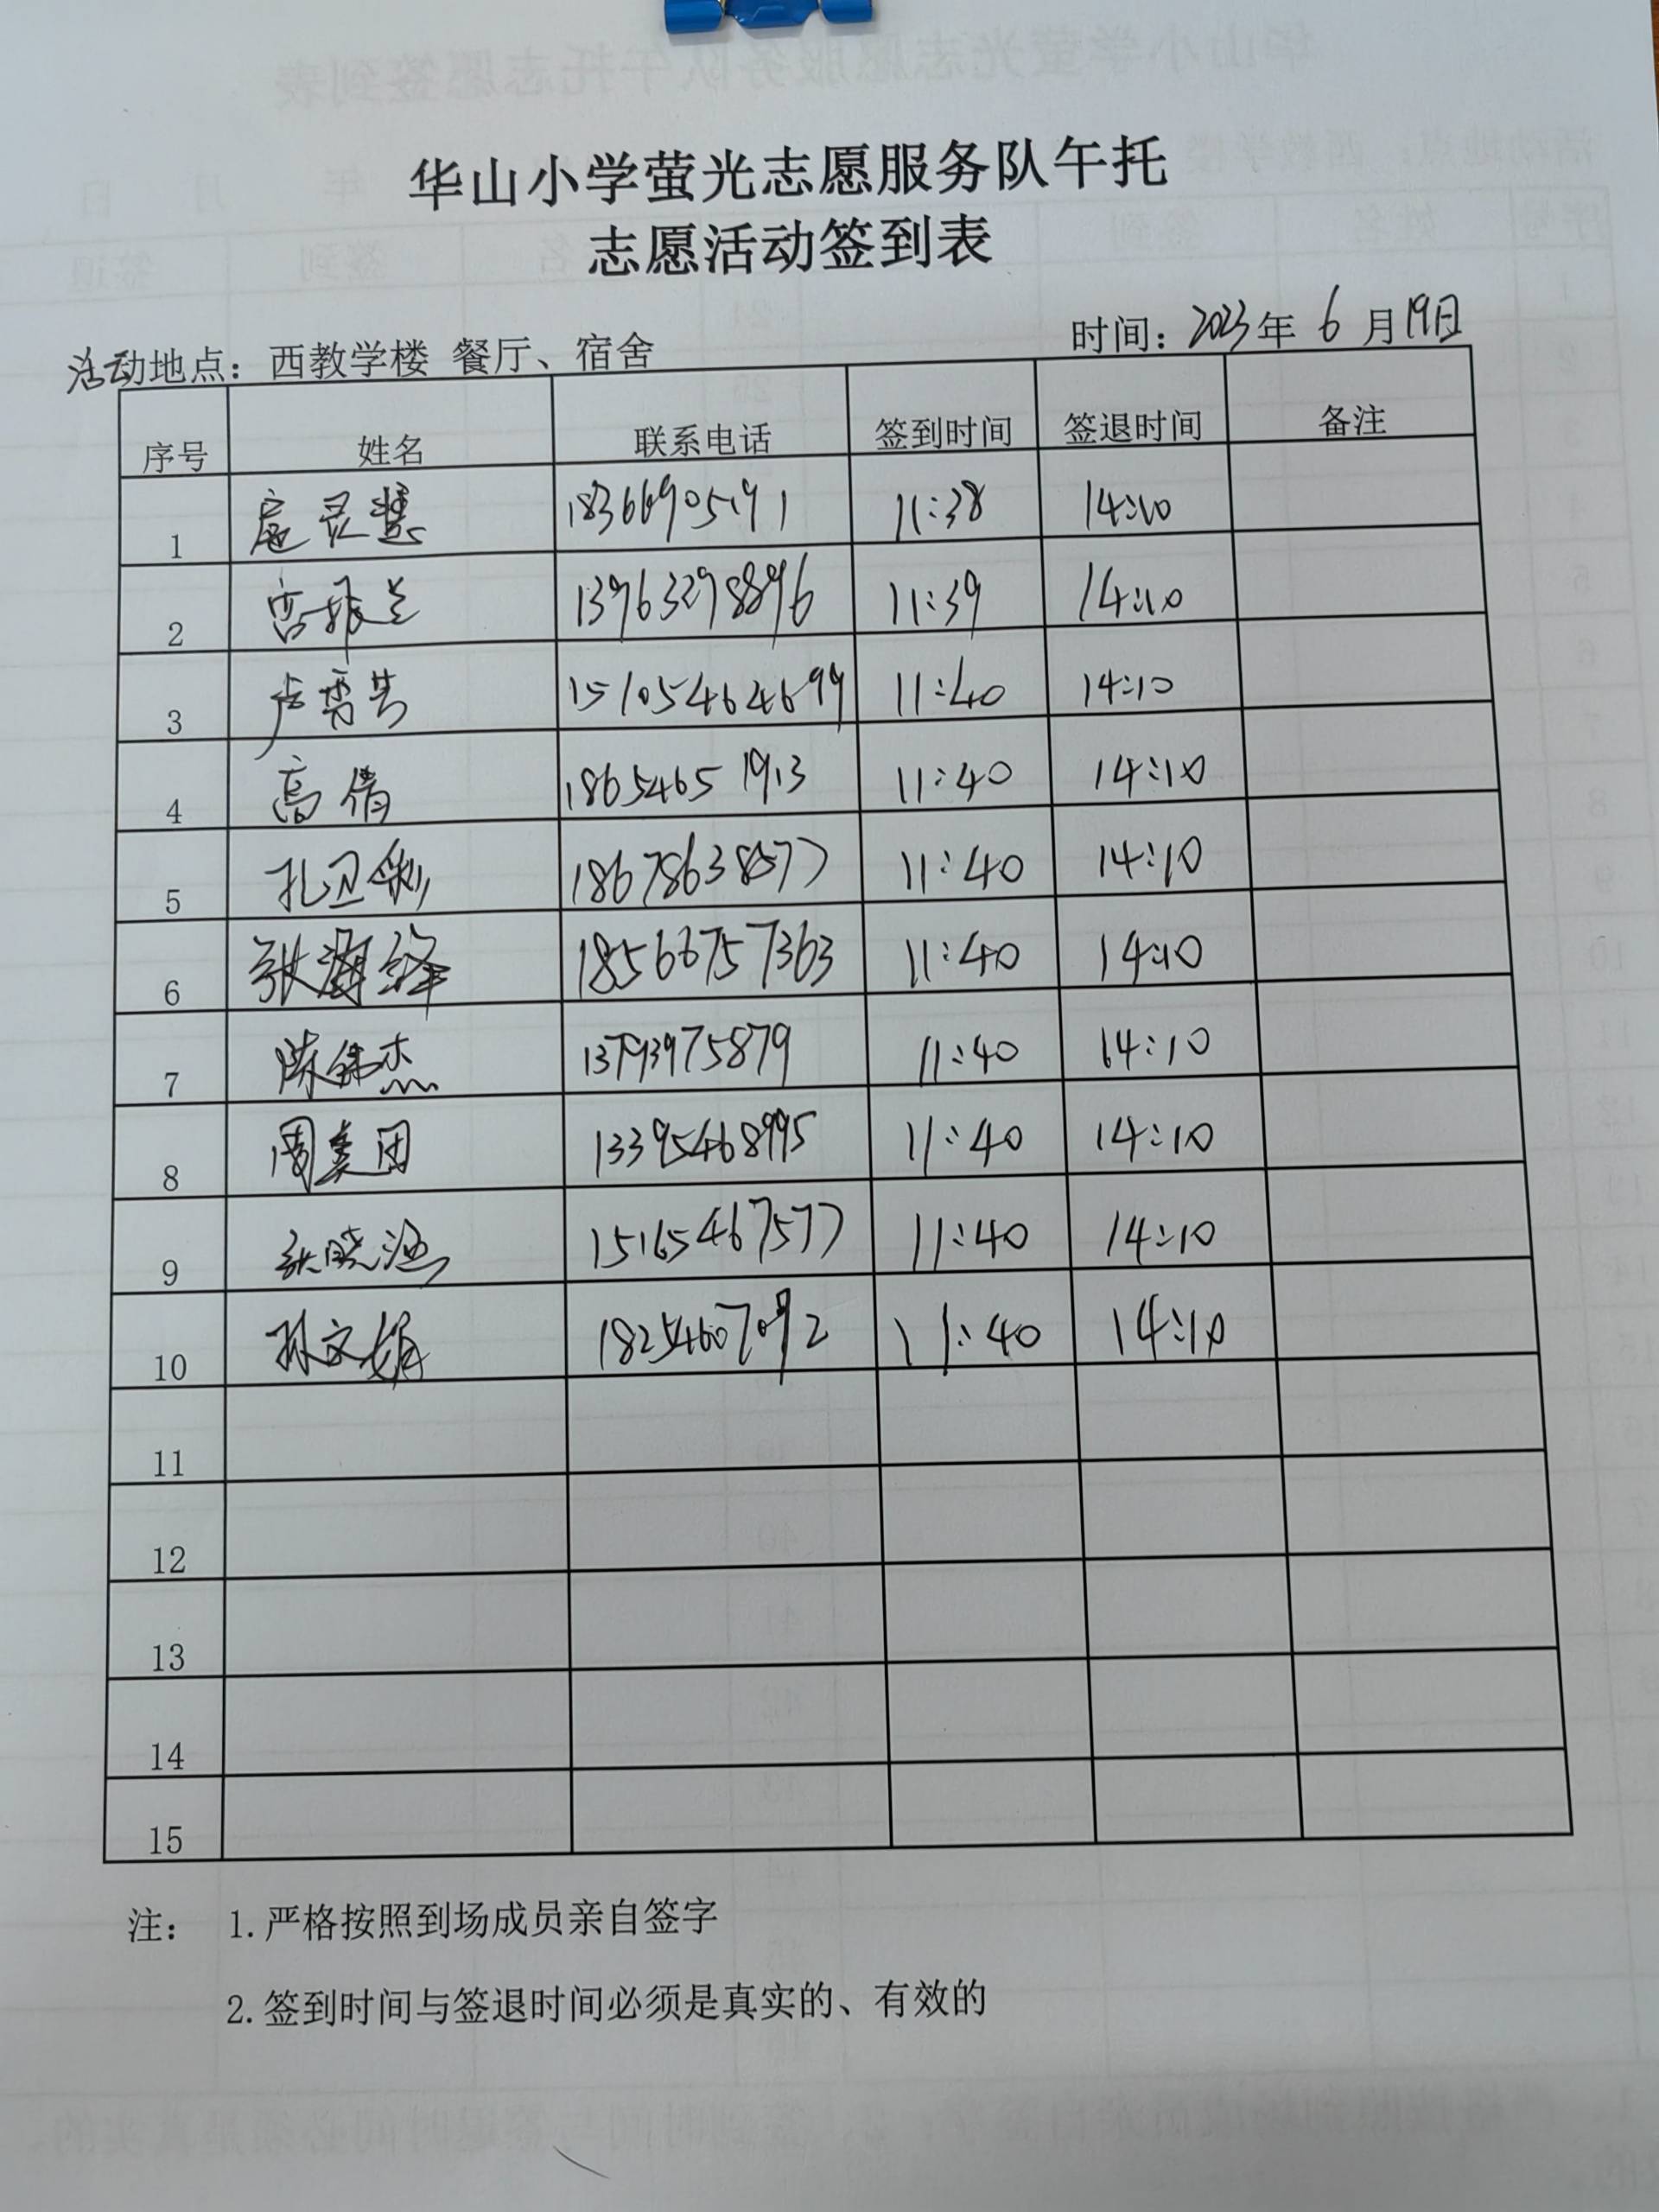 华山小学萤光志愿服务队午托
志愿活动签到表
活动地点：西教学楼 餐厅、宿舍 时间：2023年 6 月19日
序号 姓名 联系电话 签到时间 签退时间 备注
1 扈灵慧 18366905191 11:38 14:10
2 13963298896 11:39 14:10
3 15105464699 11:40 14:10
4 高倩 18654651913 11:40 14:10
5 孔卫彩 18678638577 11:40 14:10
6 张海绛 18566757363 11:40 14:10
7 陈伟杰 13793975879 11:40 14:10
8 周美团 13395468995 11:40 14:10
9 张晓 15165467577 11:40 14:10
10 孙文娟 18254607092 11:40 14:10
11
12
13
14
15
注： 1.严格按照到场成员亲自签字
2.签到时间与签退时间必须是真实的、有效的